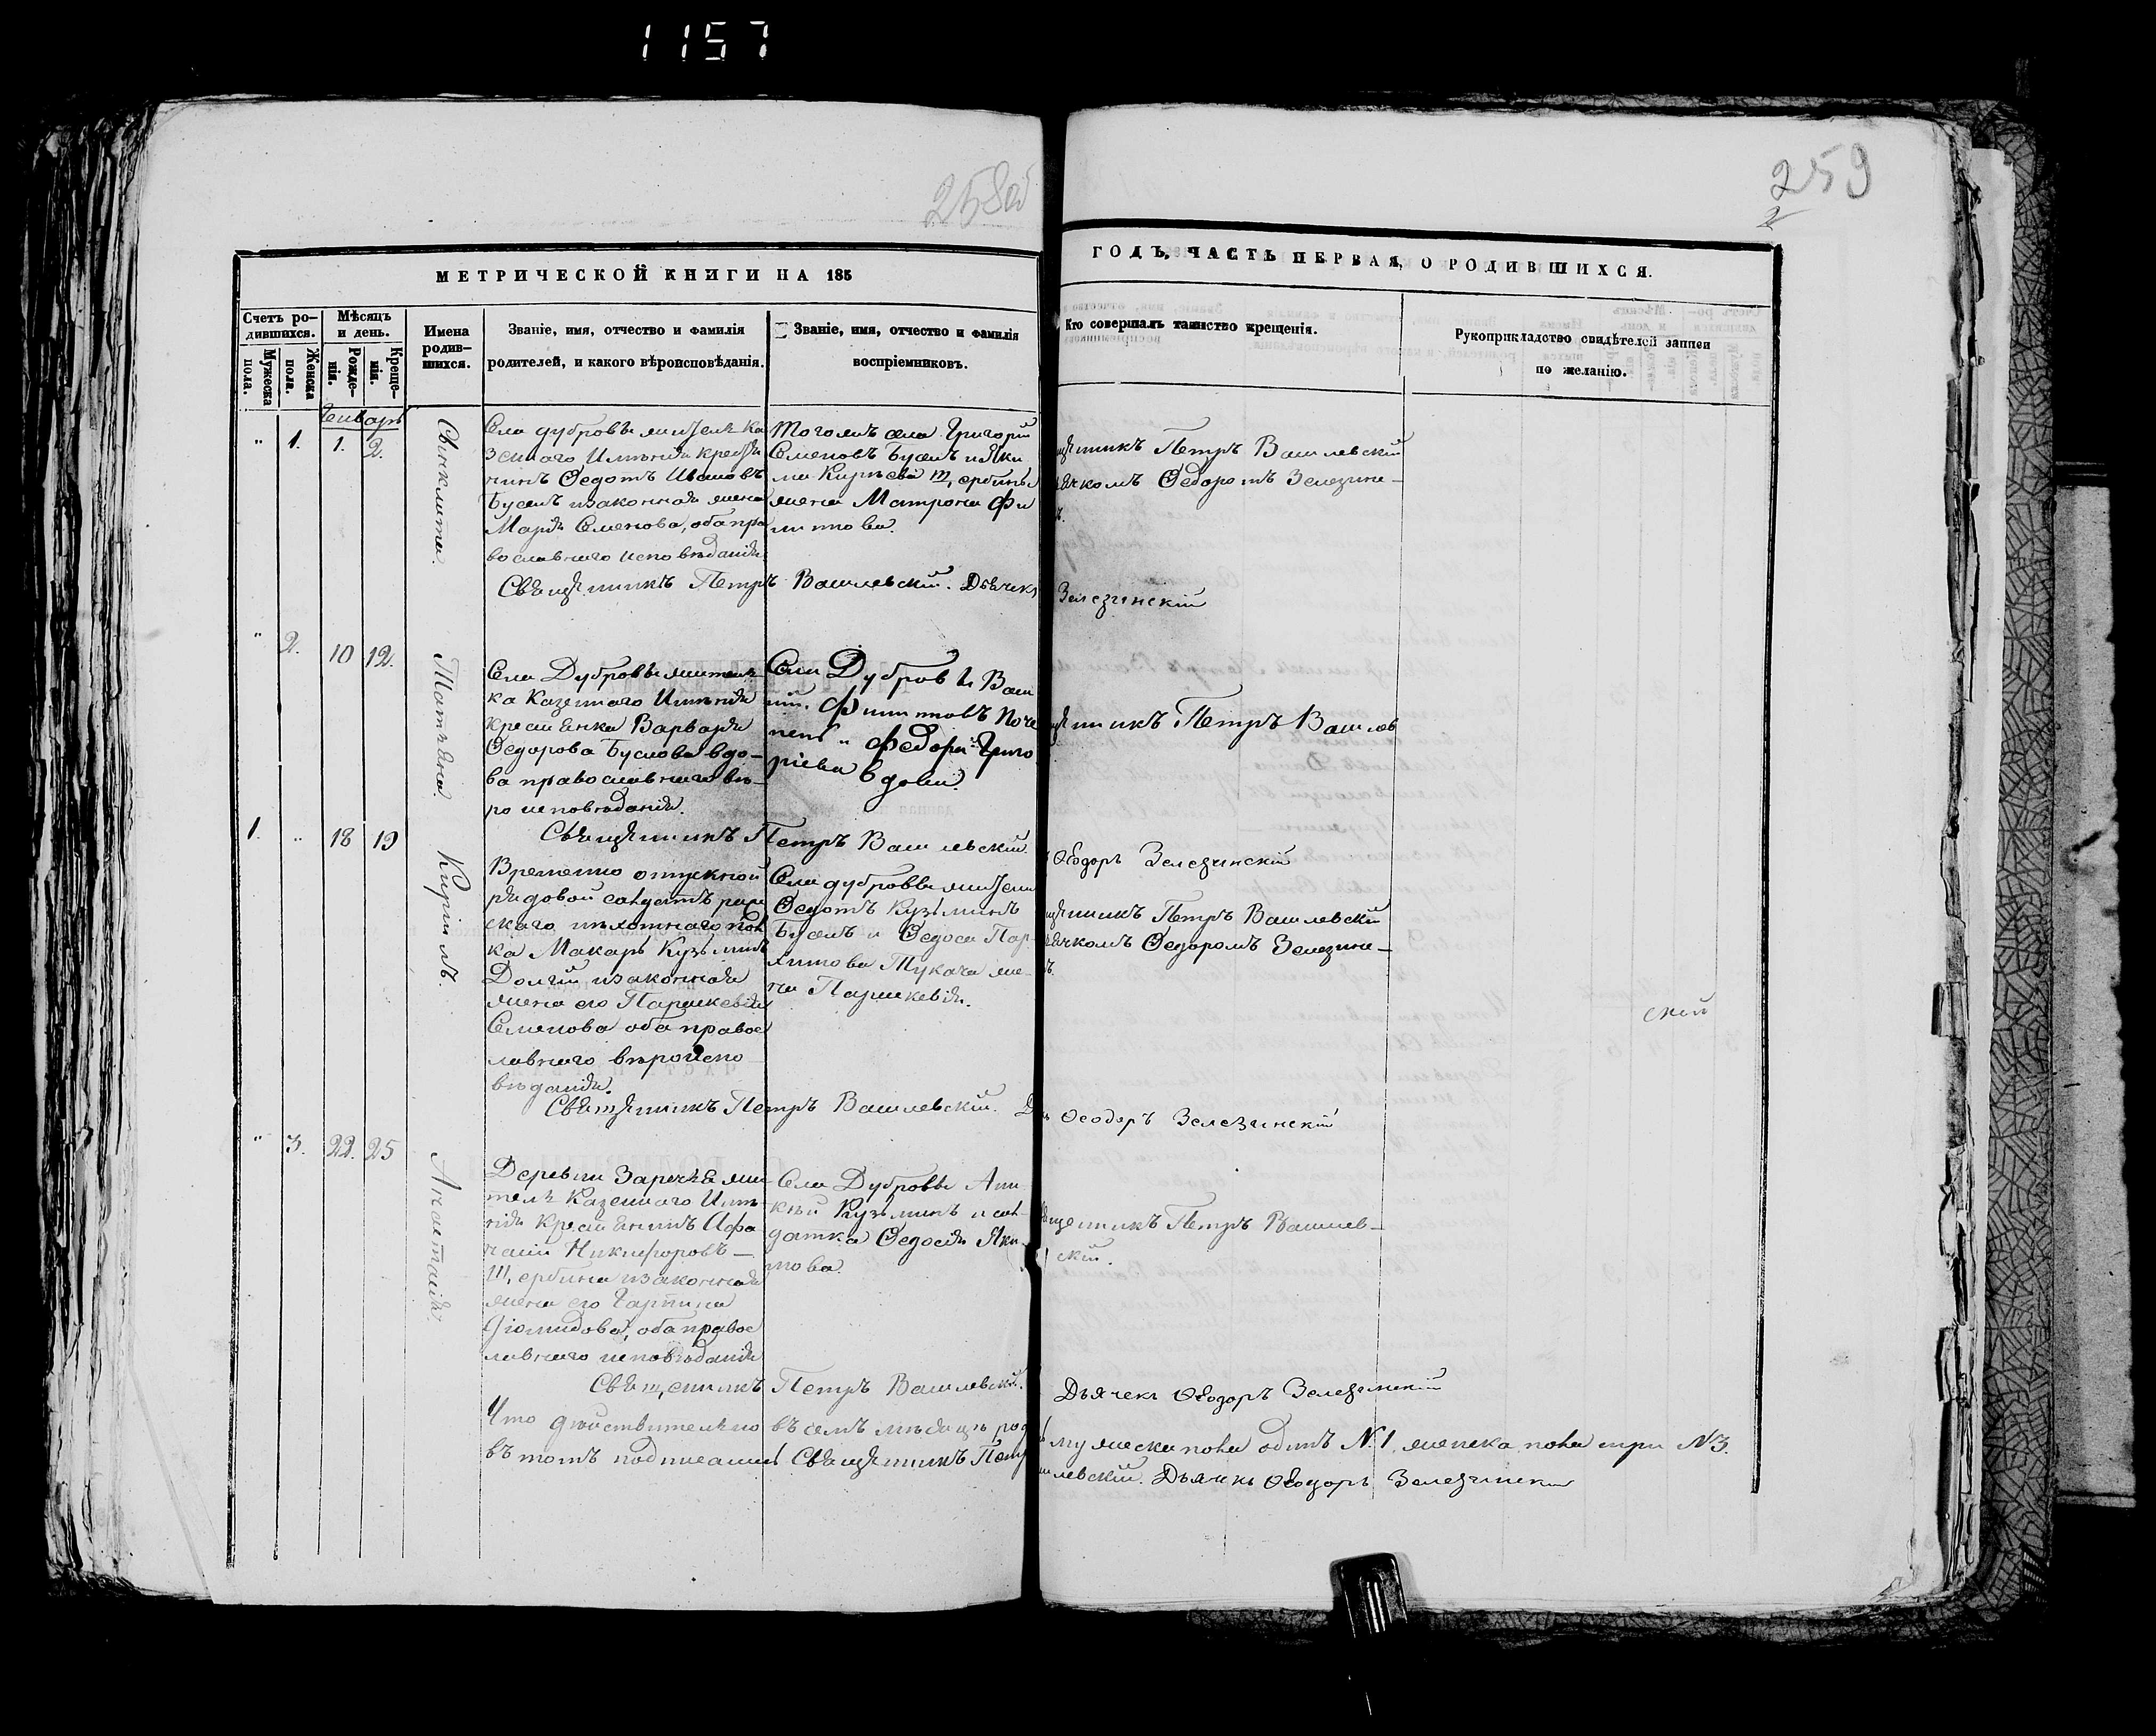 1157
258об
259
МЕТРИЧЕСКОЙ КНИГИ НА 185
ГОДЪ, ЧАСТЬ ПЕРВАЯ, О РОДИВШИХСЯ.
Счетъ ро-
дившихся.
Мужеска
пола.
Женска
пола.
Мѣсяцъ
и день.
Рожде-
нія.
Креще-
нія.
Имена
родив-
шихся.
Званіе, имя, отчество и фамилія
родителей, и какого вѣроисповѣданія.
Званіе, имя, отчество и фамилія
воспріемниковъ.
Кто совершалъ таинство крещенія.
Рукоприкладство свидѣтелей записи
по желанію.
Генварь
" 1. 1. 2.
Села дубровы житель ка
зеннаго Имѣнія крестья
нинъ Ѳедотъ Ивановъ
Буселъ и законная жена
Марія Семенова, оба пра
вославнаго исповѣданія
Тогожъ села Григорій
Семеновъ Буселъ и Яки
ма Киріева Щербины
жена Матрона Фи
липова.
щенникъ Петръ Василевскій
ячкомъ Ѳедоромъ Зелезине-
Священникъ Петръ Василевскій. Дьячекъ Зелезинскій
" 2. 10 12.
Татьяна.
Села Дубровы житель-
ка Казеннаго Имѣнія
крестьянка Варвара
Ѳедорова Буслова вдо-
ва православнаго вѣ-
ро исповѣданія.
Села Дубровы Васи
лій Филиповъ
Федора Григо
ріева вдова.
щенникъ Петръ Василев
Священникъ Петръ Василевскій.
Ѳеодоръ Зелезинскій
1. " 18 19
Кирилъ.
Временно отпускной
рядовой
скаго пѣхотнаго пол
ка Макаръ Кузьминъ
Долгій и законная
жена его Параскевія
Семенова оба правос
лавнаго вѣроиспо
вѣданія.
Села дубровы житель
Ѳедотъ Кузьминъ
Буселъ и Ѳедоса Пар-
химова Тукача же-
на Параскевія.
щенникъ Петръ Василевскій
ячкомъ Ѳедоромъ Зелезине-
скій
Священникъ Петръ Василевскій. Ѳеодоръ Зелезинскій
" 3. 22. 25
Анастасія.
Деревни Заречья жи
тель Казеннаго Имѣ
нія Крестьянинъ Афа
насій Никифоровъ
Щербина и законная
жена его
Діомидова, оба правос
лавнаго исповѣданія
Села Дубровы
Кузьминъ и сол-
датка Ѳедосія Яки-
мова.
щенникъ Петръ Василев-
скій.
Священникъ Петръ Василевскій. Дьячекъ Ѳеодоръ Зелезинскій
Что дѣйствительно въ семъ мѣсяцѣ род мужеска пола одинъ N.1, женска пола три N3.
въ томъ подписались Священникъ Петръ
илевскій. Дьячекъ Ѳеодоръ Зелезинскій